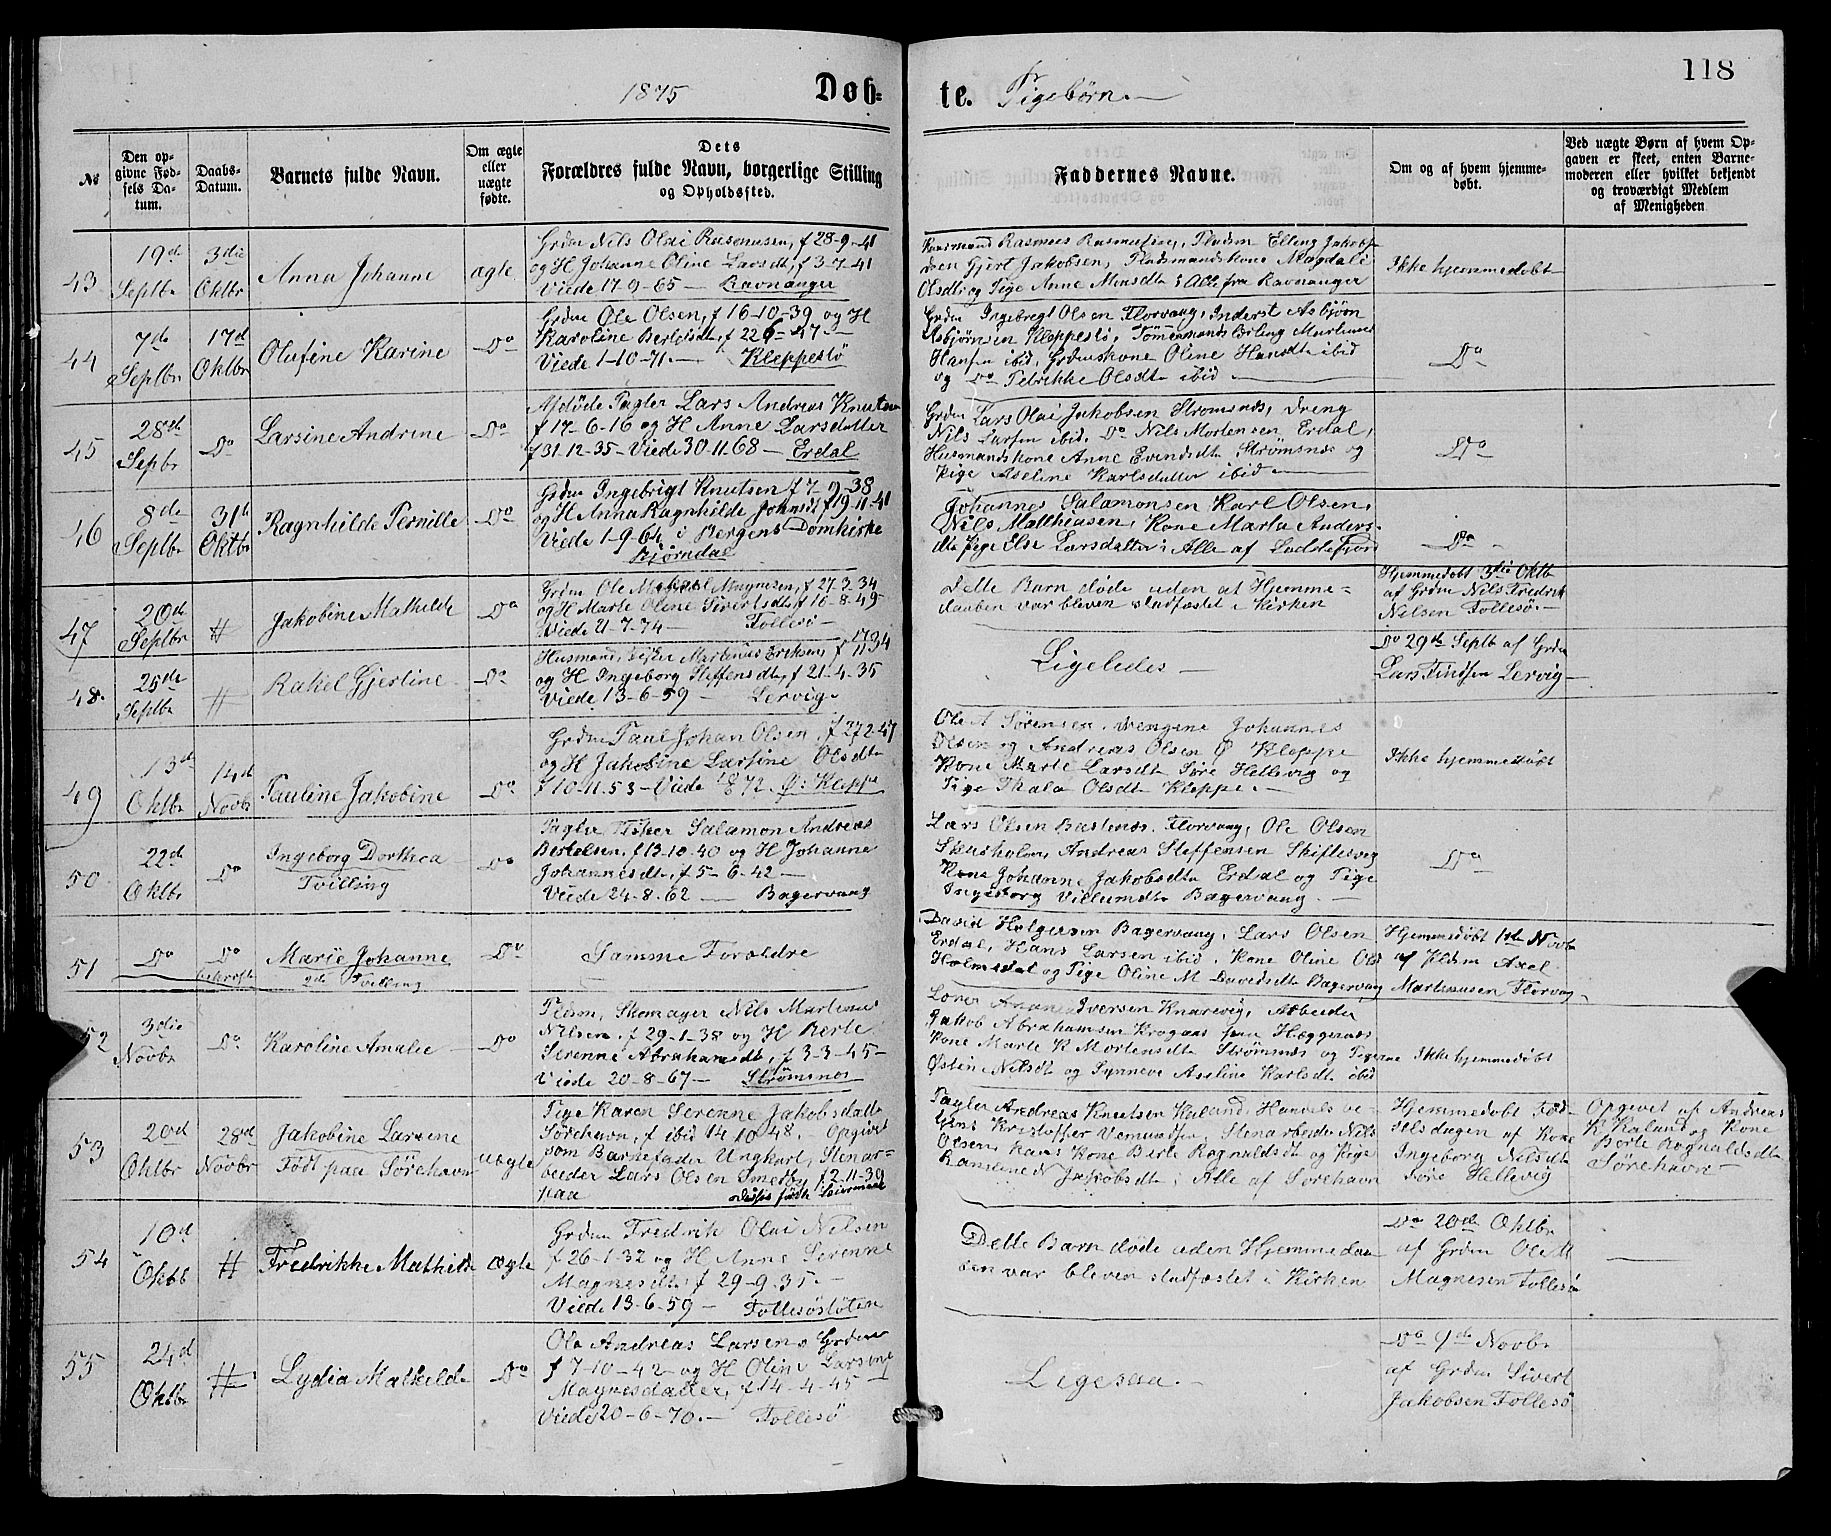 1875 Døb-
te. Pigebørn.
118
No
Den op-
givne Fød-
sels Da-
tum.
Daabs-
Datum.
Barnets fulde Navn.
Om ægte
eller
uægte
fødte.
Dets
Forældres fulde Navn, borgerlige Stilling
og Opholdssted.
Faddernes Navne.
Om og af hvem hjemme-
døbt.
Ved uægte Børn af hvem Op-
gaven er skeet, enten Barne-
moderen eller hvilket bekjendt
og troværdigt Medlem
af Menigheden
43
19de
Septbr
3die
Oktbr
Anna Johanne
ægte
Grdm Nils Olai Rasmusen, f 28-9-41
og H Johanne Oline Larsdt, f 3-7-41
Viede 17-9-65 — Ravnanger
Rasmus Rasmusen, Pladsm Elling Jakob-
sen Gjert Jakobsen, Pladsmandskone Magdali
Olsdt og Pige Anne Monsdt; Alle fra Ravnanger
Ikke hjemmedøbt
44
7de
Septbr
17de
Oktbr
Olufine Karine
Do
Grdm Ole Olsen, f 16-10-39 og H
Karoline Bertelsdt, f 22-6-47 —
Viede 1-10-71 — Kleppestø
Grdm Ingebregt Olsen Florvaag, Inderst Asbjørn
Asbjørnsen Kleppestø, Tømermands Lærling Martinus
Hansen ibid, Grdmskone Oline Hansdt ibid
og Do Fedrikke Olsdt ibid —
Do
45
28de
Sepbr
Do
Larsine Andrine
Do
Afdøde Pagter Lars Andreas Knutsen
f 17-6-16 og H Anne Larsdatter
f 31-12-35 — Viede 30-11-68 — Erdal
Grdm Lars Olai Jakobsen Strømsnes, Dreng
Nils Larsen ibid. Do Nils Mortensen Erdal,
Husmandskone Anne Evendsdt Strømsnes og
Pige Aseline Karlsdatter ibid —
Do
46
8de
Septbr
31te
Oktbr
Ragnhilde Pernille
Do
Grdm Ingebrigt Knutsen f 7-9-38
og H Anna Ragnhilde Johnsdt f 19-11-41
Viede 1-9-64 i Bergens Domkirke
Bjørndal
Johannes Salamonsen Karl Olsen,
Nils Matthiasen, Kone Marta Anders-
dt Pige Else Larsdatter; Alle af Luddefjord
Do
47
20de
Septbr
#
Jakobine Mathilde
Do
Grdm Ole Mikael Magnesen, f 27-2-34
og H Marte Oline Sivertsdt, f 16-8-45
Viede 21-7-74 — Follesø —
Dette Barn døde uden at Hjemme-
daaben var bleven stadfæstet i Kirken
Hjemmedøbt 3die Oktb
af Grdm Nils Fredrik
Nilsen Follesø. —
48.
25de
Septbr
#
Rakel Gjertine
Do
Husmand, Fisker Martinus Eriksen, f 17/11 34
og H Ingeborg Steffensdt, f 21-4-35
Viede 13-6-59 — Lervig. —
Ligeledes —
Do 29de Septb af Grdm
Lars Findsen Lervig —
49
13de
Oktbr
14de
Novbr
Pauline Jakobine
Do
Grdm Paul Johan Olsen, f 27-2-47
og H Jakobine Larsine Olsdt
f 10-11-53 — Viede 1872. Ø: Kleppe
Ole A Sørensen. Drengene Johannes
Olsen og Andreas Olsen Ø Kleppe
Kone Marte Larsdt Søre Hellevig og
Pige Thala Olsdt Kleppe. —
Ikke hjemmedøbt
50
22de
Oktbr
Do
Ingeborg Dorthea
Tvilling
Do
Pagter Fisker Salamon Andreas
Bertelsen, f 13-10-40 og H Johanne
Johannesdt, f 5-6-42 —
Viede 24-8-62 — Bagervaag
Lars Olsen Bastenes. Florvaag, Ole Olsen
Skensholm, Andreas Steffensen Skiftesvig
Kone Johanne Jakobsdt Erdal og Pige
Ingeborg Villumdt Bagervaag. —
Do
51
Do
Do
bekræft
Marie Johanne
2de Tvilling
Do
Samme Forældre
David Holgersen Bagervaag, Lars Olsen
Erdal, Hans Larsen ibid. Kone Oline Olsd
Holmedal og Pige Oline M Davidsdt Bagervaag
Hjemmedøbt 1ste Novbr
af Pldsm Axel
Martinusen Florvaag
52
3die
Novbr
Do
Karoline Amalie
Do
Pldsm, Skomager Nils Martinus
Nilsen. f 29-1-38 og H Berte
Serenne Abrahamsdt, f 3-3-45 —
Viede 20-8-67 — Strømsnes
Iversen Knarevig, Arbeider
Jakob Abrahamsen Krogaas paa Hæggernes
Kone Marte K Mortensdt Strømsnes og Pigerne
Østine Nilsdt og Synneve Aseline Karlsdt ibid
Ikke hjemmedøbt
53
20de
Oktbr
28de
Novbr
Jakobine Larsine
Født paa Sørehavn
uægte
Pige Karen Serenne Jakobsdatter
Sørehavn, f ibid 14-10-48. — Opgivet
som Barnefader Ungkarl, Stenar-
beider Lars Olsen Smedby, f 2-11-39
paa
deres første Leiermaal
Pagter Andreas Knutsen Kaland, Handels be-
tjent Kristoffer Vemundsen, Stenarbeider Nils
Olsen, hans Kone Berte Rognaldsdt og Pige
Jakobsdt; Alle af Sørehavn
Hjemmedøbt Fød-
selsdagen af Kone
Ingeborg Nilsdt
Søre Hellevig
Opgivet af Andreas
K Kaland og Kone
Berte Rognaldsdt
Sørehavn —
54
10de
Oktb
#
Fredrikke Mathilde
ægte
Grdm Fredrik Olai Nilsen
f 26-1-32 og H Anne Serenne
Magnesdt, f 29-9-35. —
Viede 13-6-59 — Follesøsløten
Dette Barn døde uden Hjemmedaa-
ben var bleven stadfæstet i Kirken
Do 20de Oktbr
af Grdm Ole M
Magnesen Follesø
55
24de
Oktbr
#
Lydia Mathilde
Do
Ole Andreas Larsen, Grdm
f 7-10-42 — og H Oline Larsine
Magnesdatter, f 14-4-45 —
Viede 20-6-70. — Follesø
Ligesaa. —
Do 9de Novbr
af Grdm Sivert
Jakobsen Follesø